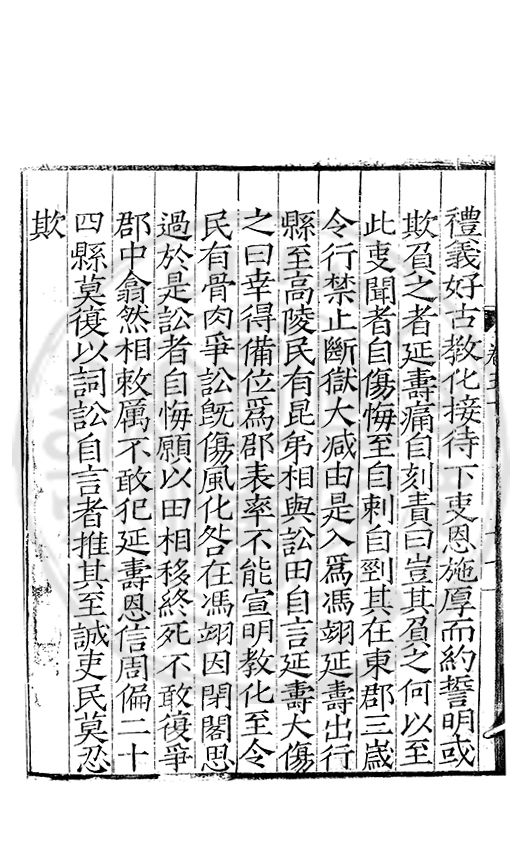 禮義好古教化接待下吏恩施厚而約誓明或
欺負之者延壽痛自刻責曰豈其負之何以至
此吏聞者自傷悔至自刺自剄其在東郡三歲
令行禁止斷獄大减由是入爲馮翊延壽出行
縣至高陵民有昆弟相與訟田自言延壽大傷
之曰幸得備位爲郡表率不能宣明教化至令
民有骨肉爭訟旣傷風化咎在馮翊因閉閣思
過於是訟者自悔願以田相移終死不敢復爭
郡中翕然相敕厲不敢犯延壽恩信周偏二十
四縣莫復以詞訟自言者推其至誠吏民莫忍
欺